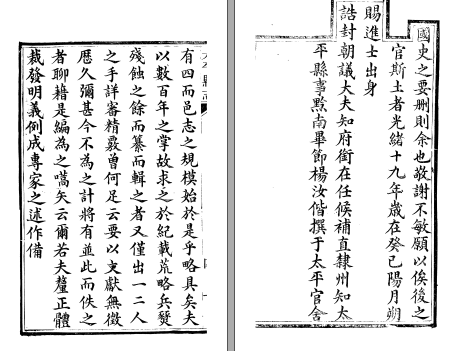 有四而邑志之規模始於是乎略具矣夫
以數百年之掌故求之於紀載荒略兵燹
殘蝕之餘而纂而輯之者又僅出一二人
之手詳審精覈曾何足云要以文獻無徵
歷久彌甚今不為之計將有並此而佚之
者聊藉是編為之嚆矢云爾若夫釐正體
裁發明義例成專家之述作備
國史之要刪則余也敬謝不敏願以俟後之
官斯土者光緒十九年歲在癸巳陽月朔
賜進士出身
誥封朝議大夫知府銜在任候補直隸州知太
平縣事黔南畢節楊汝偕撰于太平官舍